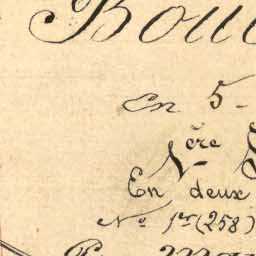 Bou
En 5-
1ère
En deux
No 1er (258)